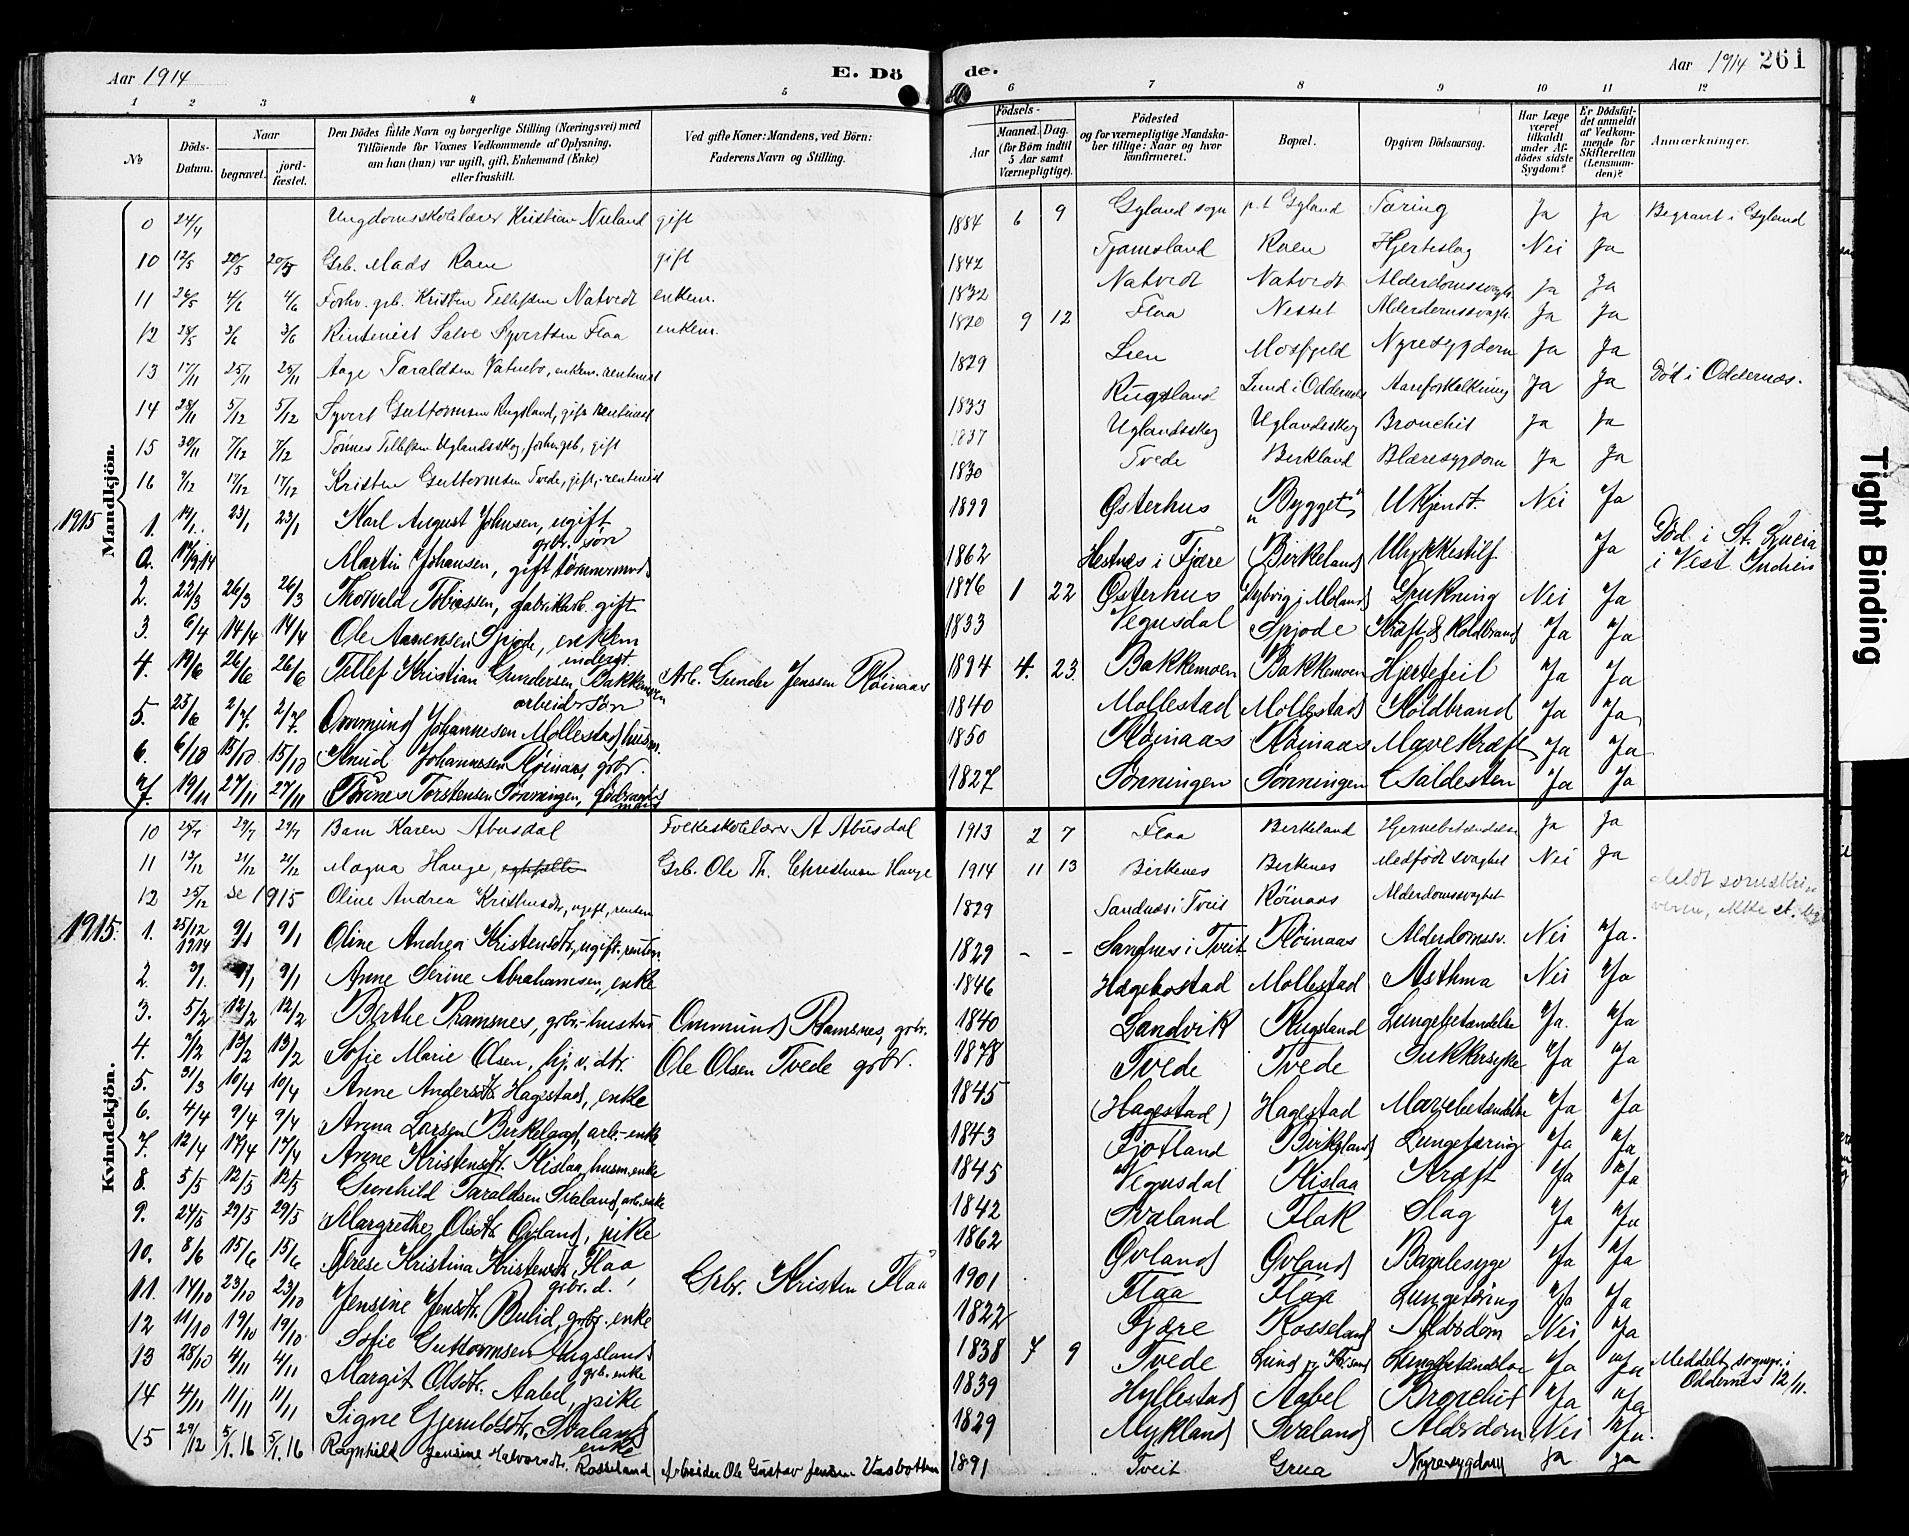 Aar 1914 E. Dö de. Aar 1914 261
1 2 3 4 5 6 7 8 9 10 11 12
No Döds-Datum. Naar begravet. jordfæstet. Den Dödes fulde Navn og borgerlige Stilling (Næringsvei) med Tilföiende for Voxnes Vedkommende af Oplysning, om han (hun) var ugift, gift, Enkemand (Enke) eller fraskilt. Ved gifte Koner: Mandens, ved Börn: Faderens Navn og Stilling. Födsels- Aar Maaned. Dag. (for Börn indtil 5 Aar samt Værnepligtige). Födested og for værnepligtige Mandskaber tillige: Naar og hvor konfirmeret. Bopæl. Opgiven Dödsaarsag. Har Læge været tilkaldt under Afdödes sidste Sygdom? Er Dödsfaldet anmeldt af Vedkommende for Skifteretten (Lensmanden)? Anmærkninger.
Mandkjön.
0 24/4 Ungdomsskolelærer Kristian Nuland gift 1884 6 9 Gyland sogn p.t. Gyland Tæring Ja Ja Begravet i Gyland
10 12/5 20/5 20/5 Grb. Mads Raen gift 1842 Tjomsland Raen Hjerteslag Nei Ja
11 26/5 4/6 4/6 Forhv. grb. Kristen Tellefsen Natvedt enkem. 1832 Natvedt Natvedt Alderdomssvagh. Ja Ja
12 28/5 3/6 3/6 Rentenist Salve Syvertsen Flaa enkem. 1820 9 12 Flaa Nesset Alderdomssvagh. Ja Ja
13 17/11 25/11 25/11 Aage Taraldsen Vatnebo, enkem. rentenist 1829 Lien Mosfjeld Nyresygdom Ja Ja
14 28/11 5/12 5/12 Syvert Guttormsen Rugsland, gift rentenist 1833 Rugsland Lund i Oddernes Aareforkalkning Ja Ja Död i Oddernes.
15 30/11 7/12 7/12 Tönnes Tellefsen Uglandsskog, forh. grb., gift 1837 Uglandsskog Uglandsskog Bronchit Ja Ja
16 9/12 17/12 17/12 Kristen Guttormsen Tvede, gift, rentenist 1830 Tvede Birkland Blæresygdom Ja Ja
1915 1. 14/1. 23/1 23/1 Karl August Johnsen, ugift grbr. sön 1899 Østerhus "Bygget" Ukjendt. Nei Ja
a. 17/9 14 Martin Johansen, gift tömmermd. 1862 Hestnes i Fjære Birkeland Ulykkestilf. Ja Död i St. Lucia i Vest Indien
2. 22/3 26/3 26/3 Thorvald Tobiassen, fabrikarb. gift 1876 1 22 Østerhus Dybvig i Moland Drukning Nei Ja
3. 6/4 14/4 14/4 Ole Aanensen Spjode, enkem. 1833 Vegusdal Spjode Kræft & Koldbrand Ja Ja
4. 19/6 26/6 26/6 Tellef Kristian Gundersen Bakkemoen arbeidssön Arb. Gunder Jenssen Röinaas 1894 4. 23. Bakkemoen Bakkemoen Hjertefeil Ja Ja
5. 25/6 2/7. 2/7. Ommund Johannesen Mollestad, husm. 1840 Mollestad Mollestad Koldbrand Ja Ja
6. 6/10 15/10 15/10 Knud Johannesen Röinaas, grbr. 1850 Röinaas Röinaas Mavekræft Ja Ja
7. 19/11 27/11 27/11 Tönnes Torstensen Tönningen, födraadsmand 1827 Tönningen Tönningen Galdesten Ja Ja
Kvindekjön.
10 25/7 29/7 29/7 Barn Karen Abusdal Folkeskolelærer A Abusdal 1913 2 7 Flaa Birkeland Hjernebetændelse Ja Ja
11 13/12 21/12 21/12 Magna Hauge, Grb. Ole Th. Christensen Hauge 1914 11 13 Birkenes Birkenes Medfödt svaghet Nei Ja
12 25/12 se 1915 Oline Andrea Kristensdtr, ugift, renten 1829 Sandnæs i Tveit Röinaas Alderdomssvaghet
1915. 1. 25/12 1914 9/1 9/1 Oline Andrea Kristensdtr, ugift. renten. 1829 – – Sandnes i Tveit Röinaas Alderdomssv. Nei Ja.
2. 3/1 9/1 9/1 Anne Serine Abrahamsen, enke 1846 Hægebostad Mollestad Asthma Nei Ja
3. 5/2 12/2 12/2 Birthe Ramsnes, grbr.-hustru Ommund Ramsnes, grbr. 1840 Sandvik Rugsland Lungebetændelse Ja. Ja
4. 7/2 13/2 13/2 Sofie Marie Olsen, hj. v. dtr. Ole Olsen Tvede grbr. 1878 Tvede Tvede Sukkersyke Ja Ja
5. 31/3 10/4 10/4 Anne Andersdtr Hagestad, enke 1845 (Hagestad) Hagestad Mavebetændelse Ja Ja
6. 4/4 9/4 9/4 Anna Larsen Birkeland, arb.-enke 1843 Fjotland Birkeland Lungetæring Ja Ja
7. 12/4 17/4 17/4 Anne Kristensdtr. Kislaa, husm. enke 1845 Vegusdal Kislaa Kræft Ja Ja
8. 5/5 12/5 12/5 Gunhild Taraldsen Svaland, arb. enke 1842 Svaland Flak Slag Ja Ja
9. 24/5 29/5 29/5 Margrethe Olsdtr Øvland, pike 1862 Øvland Øvland Barnlesyge Ja Ja
10. 8/6 15/6 15/6 Terese Kristina Kristensdtr. Flaa grbr. d. Grbr. Kristen Flaa 1901 Flaa Flaa Lungetæring Ja Ja
11. 14/10 23/10 23/10 Jensine Jensdtr. Bulid, grbr. enke 1822 Fjære Rosseland Alderdom Nei Ja
12 11/10 19/10 19/10 Sofie Guttormsen Rugsland grb. enke 1838 7 9 Tvede Lund pr. Kr.sand Lungebetændelse Ja Ja Meddelt sognepr. i Oddernes 12/11.
13 28/10 4/11 4/11 Margit Olsdtr. Aabel, pike 1839 Hyllestad Aabel Bronchit Ja Ja
14 4/11 11/11 11/11 Signe Gjeruldsdtr. Svaland enke 1829 Mykland Svaland Alderdom Nei Ja.
15 29/12 5/1.16 5/1.16 Ragnhild Jensine Halvorsdtr. Rosseland Arbeider Ole Gustav Jensen Vasbotten 1891 Tveit Grua Nyresygdom Ja Ja
Tight Binding